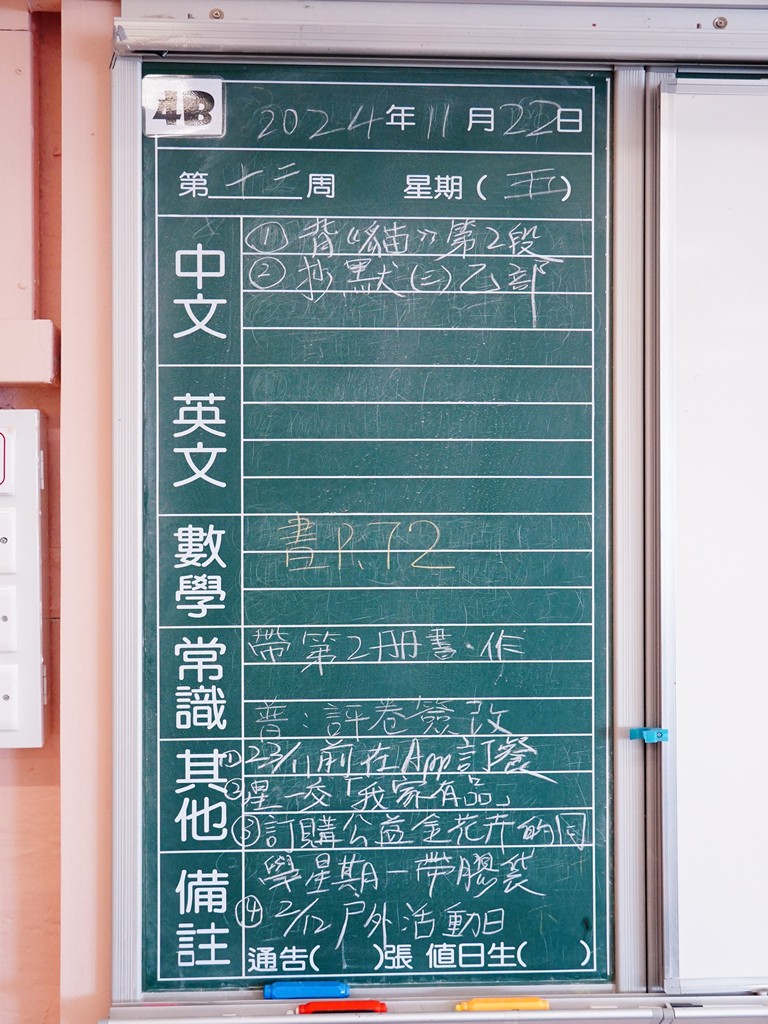 4B
2024年11月22日
第十三周 星期(五)
中文
① 背《貓》第2段
② 抄默(三)乙部
英文
數學
書P.72
常識
帶第2冊書、作
普：評卷簽改
其他
① 23/11前在App訂餐
② 星一交「我家有品」
③ 訂購公益金花卉的同
備註
學星期一帶膠袋
④ 2/12戶外活動日
通告( )張 值日生( )